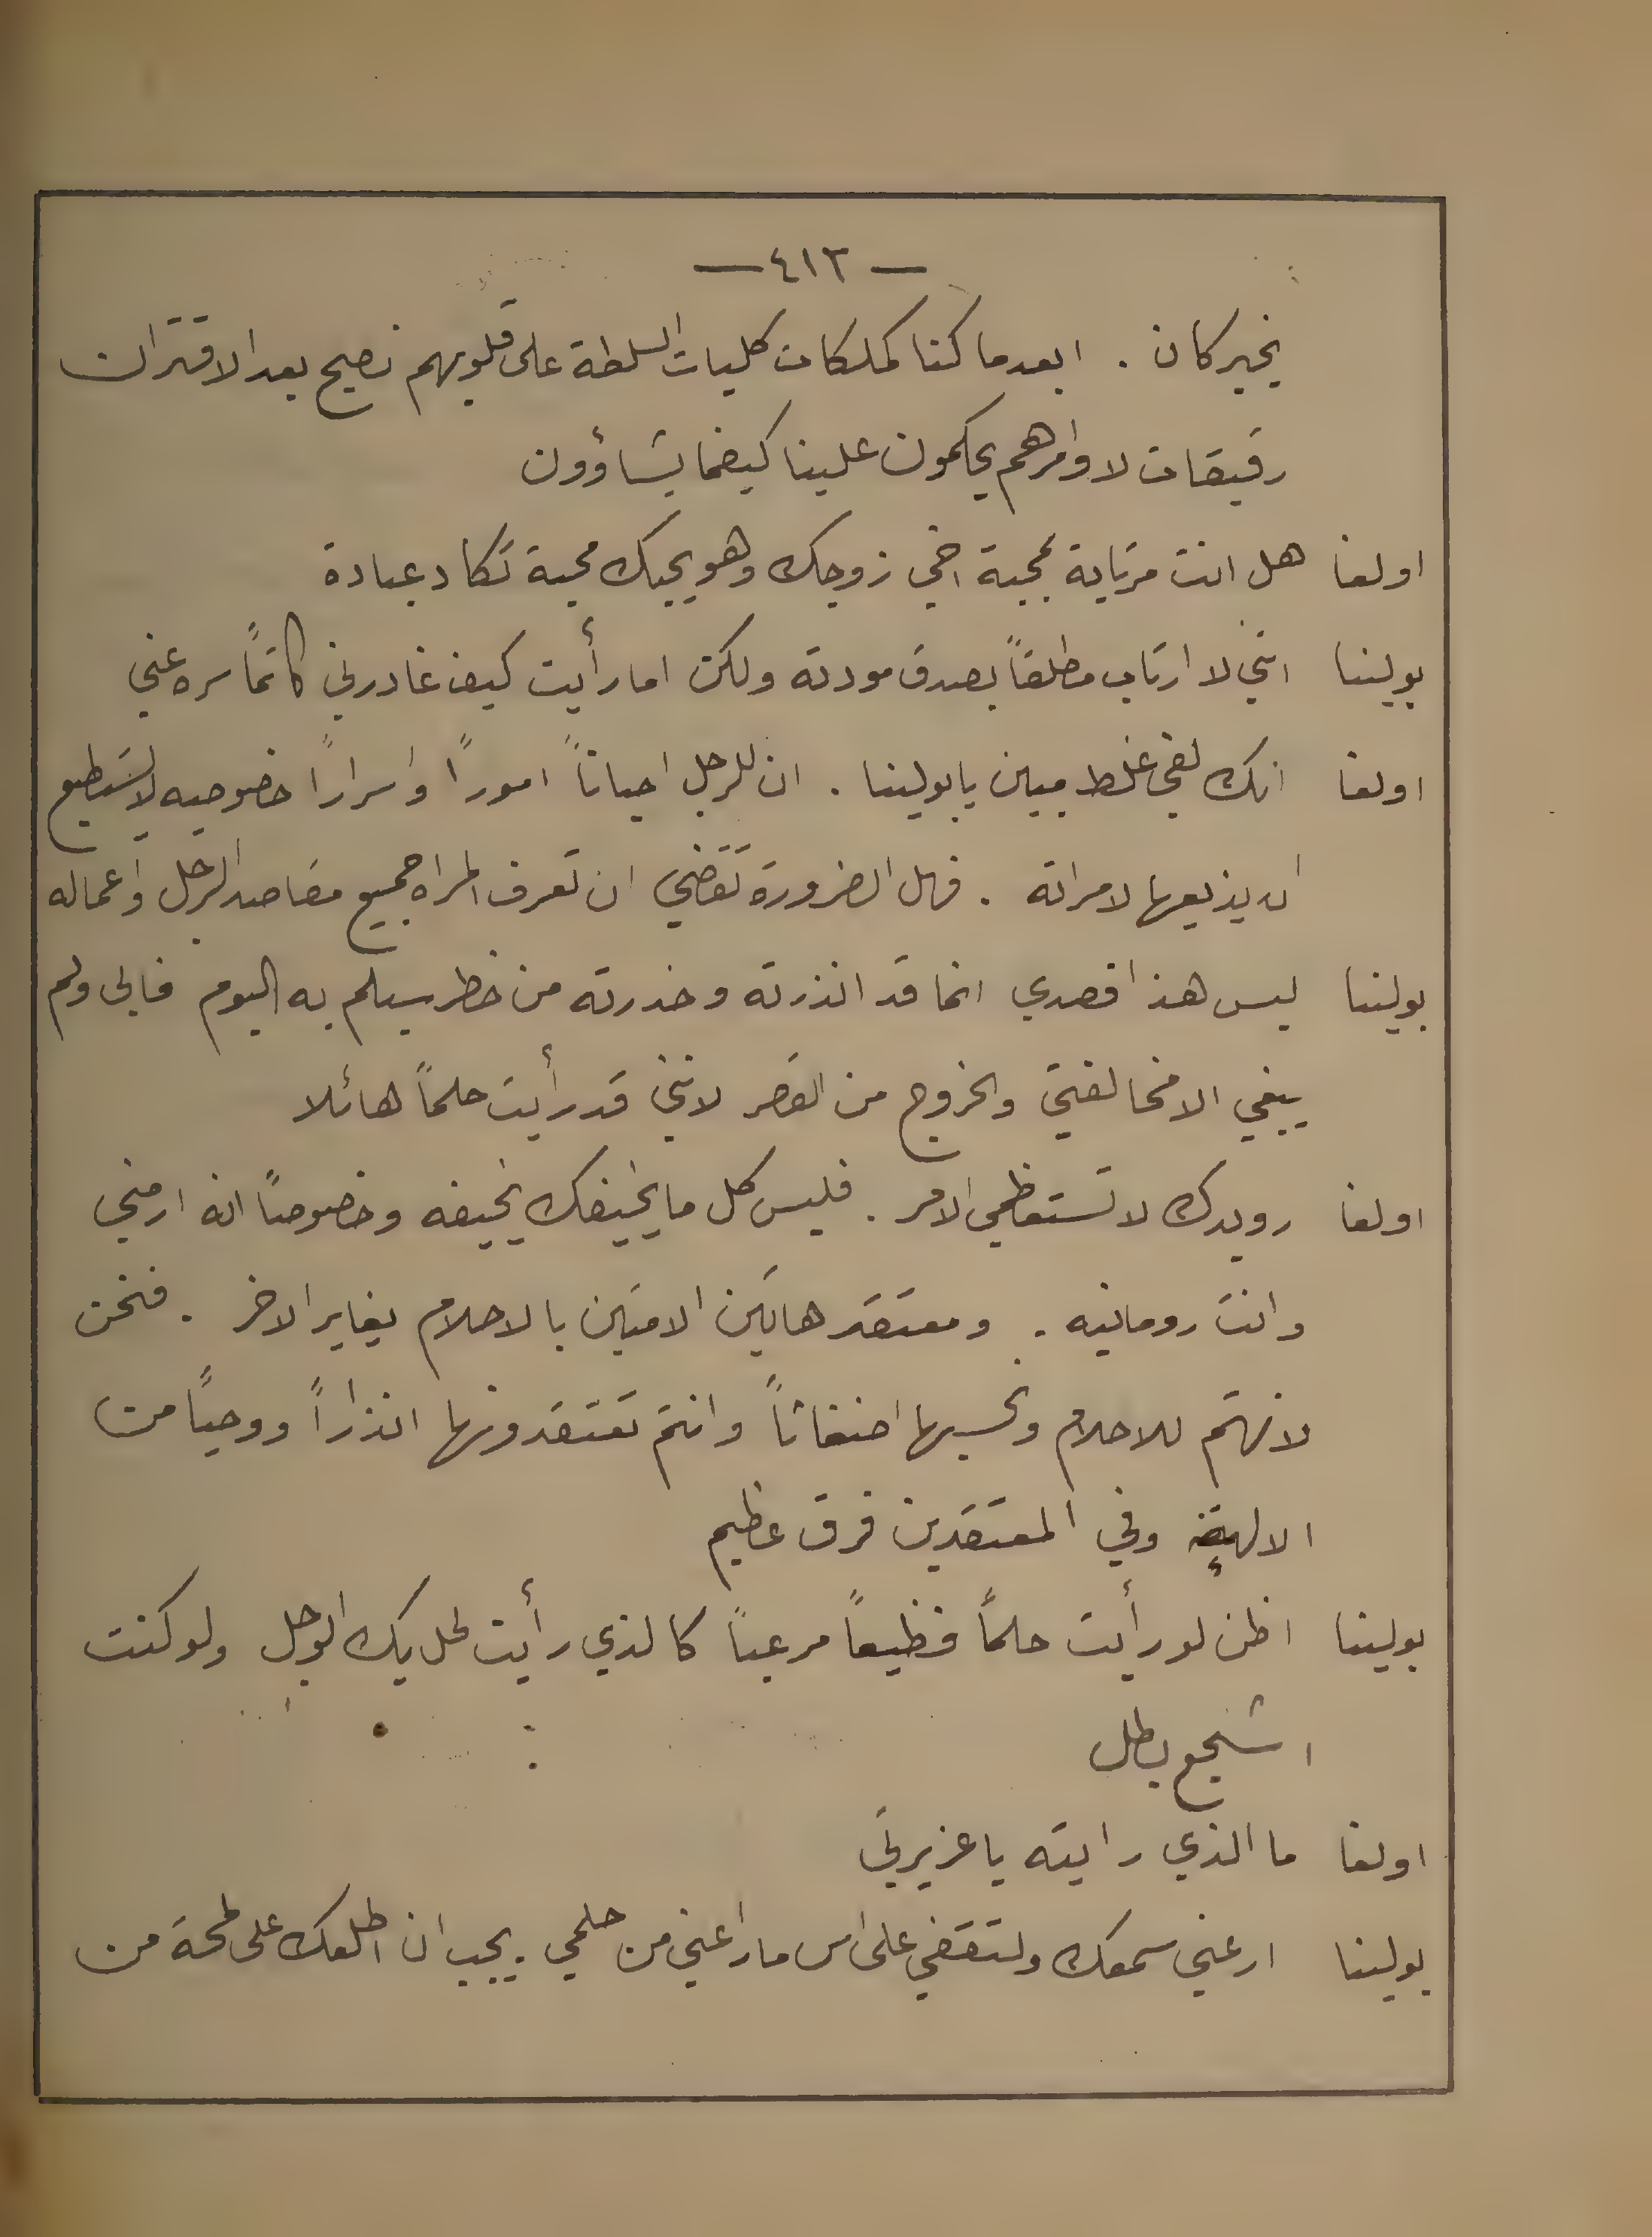 — ٤١٣ —
بخبر كان . ابعد ما كنا كملكات كليات السلطة على قلوبهم نصبح بعد الاقتران
رقيقات لاوامرهم يحكمون علينا كيفما يشاؤون
اولغا هل انت مرتابة بمحبة اخي زوجك وهو يحبك محبة تكاد عبادة
بولينا انني لا ارتاب مطلقاً بصدق مودته ولكن اما رأيت كيف غادرني كاتماً سره عني
اولغا انك لفي غلط مبين يا بولينا . ان للرجل احياناً اموراً واسراراً خصوصيه لا يستطيع
ان يذيعها لامراته . فهل الضرورة تقضي ان تعرف المراه جميع مقاصد الرجل واعماله
بولينا ليس هذا قصدي انما قد انذرته وحذرته من خطر سيلم به اليوم فابى ولم
يبغي الا مخالفتي والخروج من القصر لانني قد رأيت حلماً هائلا
اولغا رويدك لا تستعظمي الامر . فليس كل ما يخيفك يخيفه وخصوصاً انه ارمني
وانت رومانيه . ومعتقد هاتين الامتين بالاحلام يغاير الاخر . فنحن
لا نهتم للاحلام ونحسبها اضغاثاً وانتم تعتقدونها انذاراً ووحياً من
الالهة وفي المعتقدين فرق عظيم
بولينا اظن لو رأيت حلماً فظيعاً مرعباً كالذي رأيت لحل بك الوجل ولو كنت
اشجع بطل
اولغا ما الذي رايته يا عزيزتي
بولينا ارعني سمعك ولتقفي على اس ما راعني من حلمي . يجب ان اطلعك على لمحة من